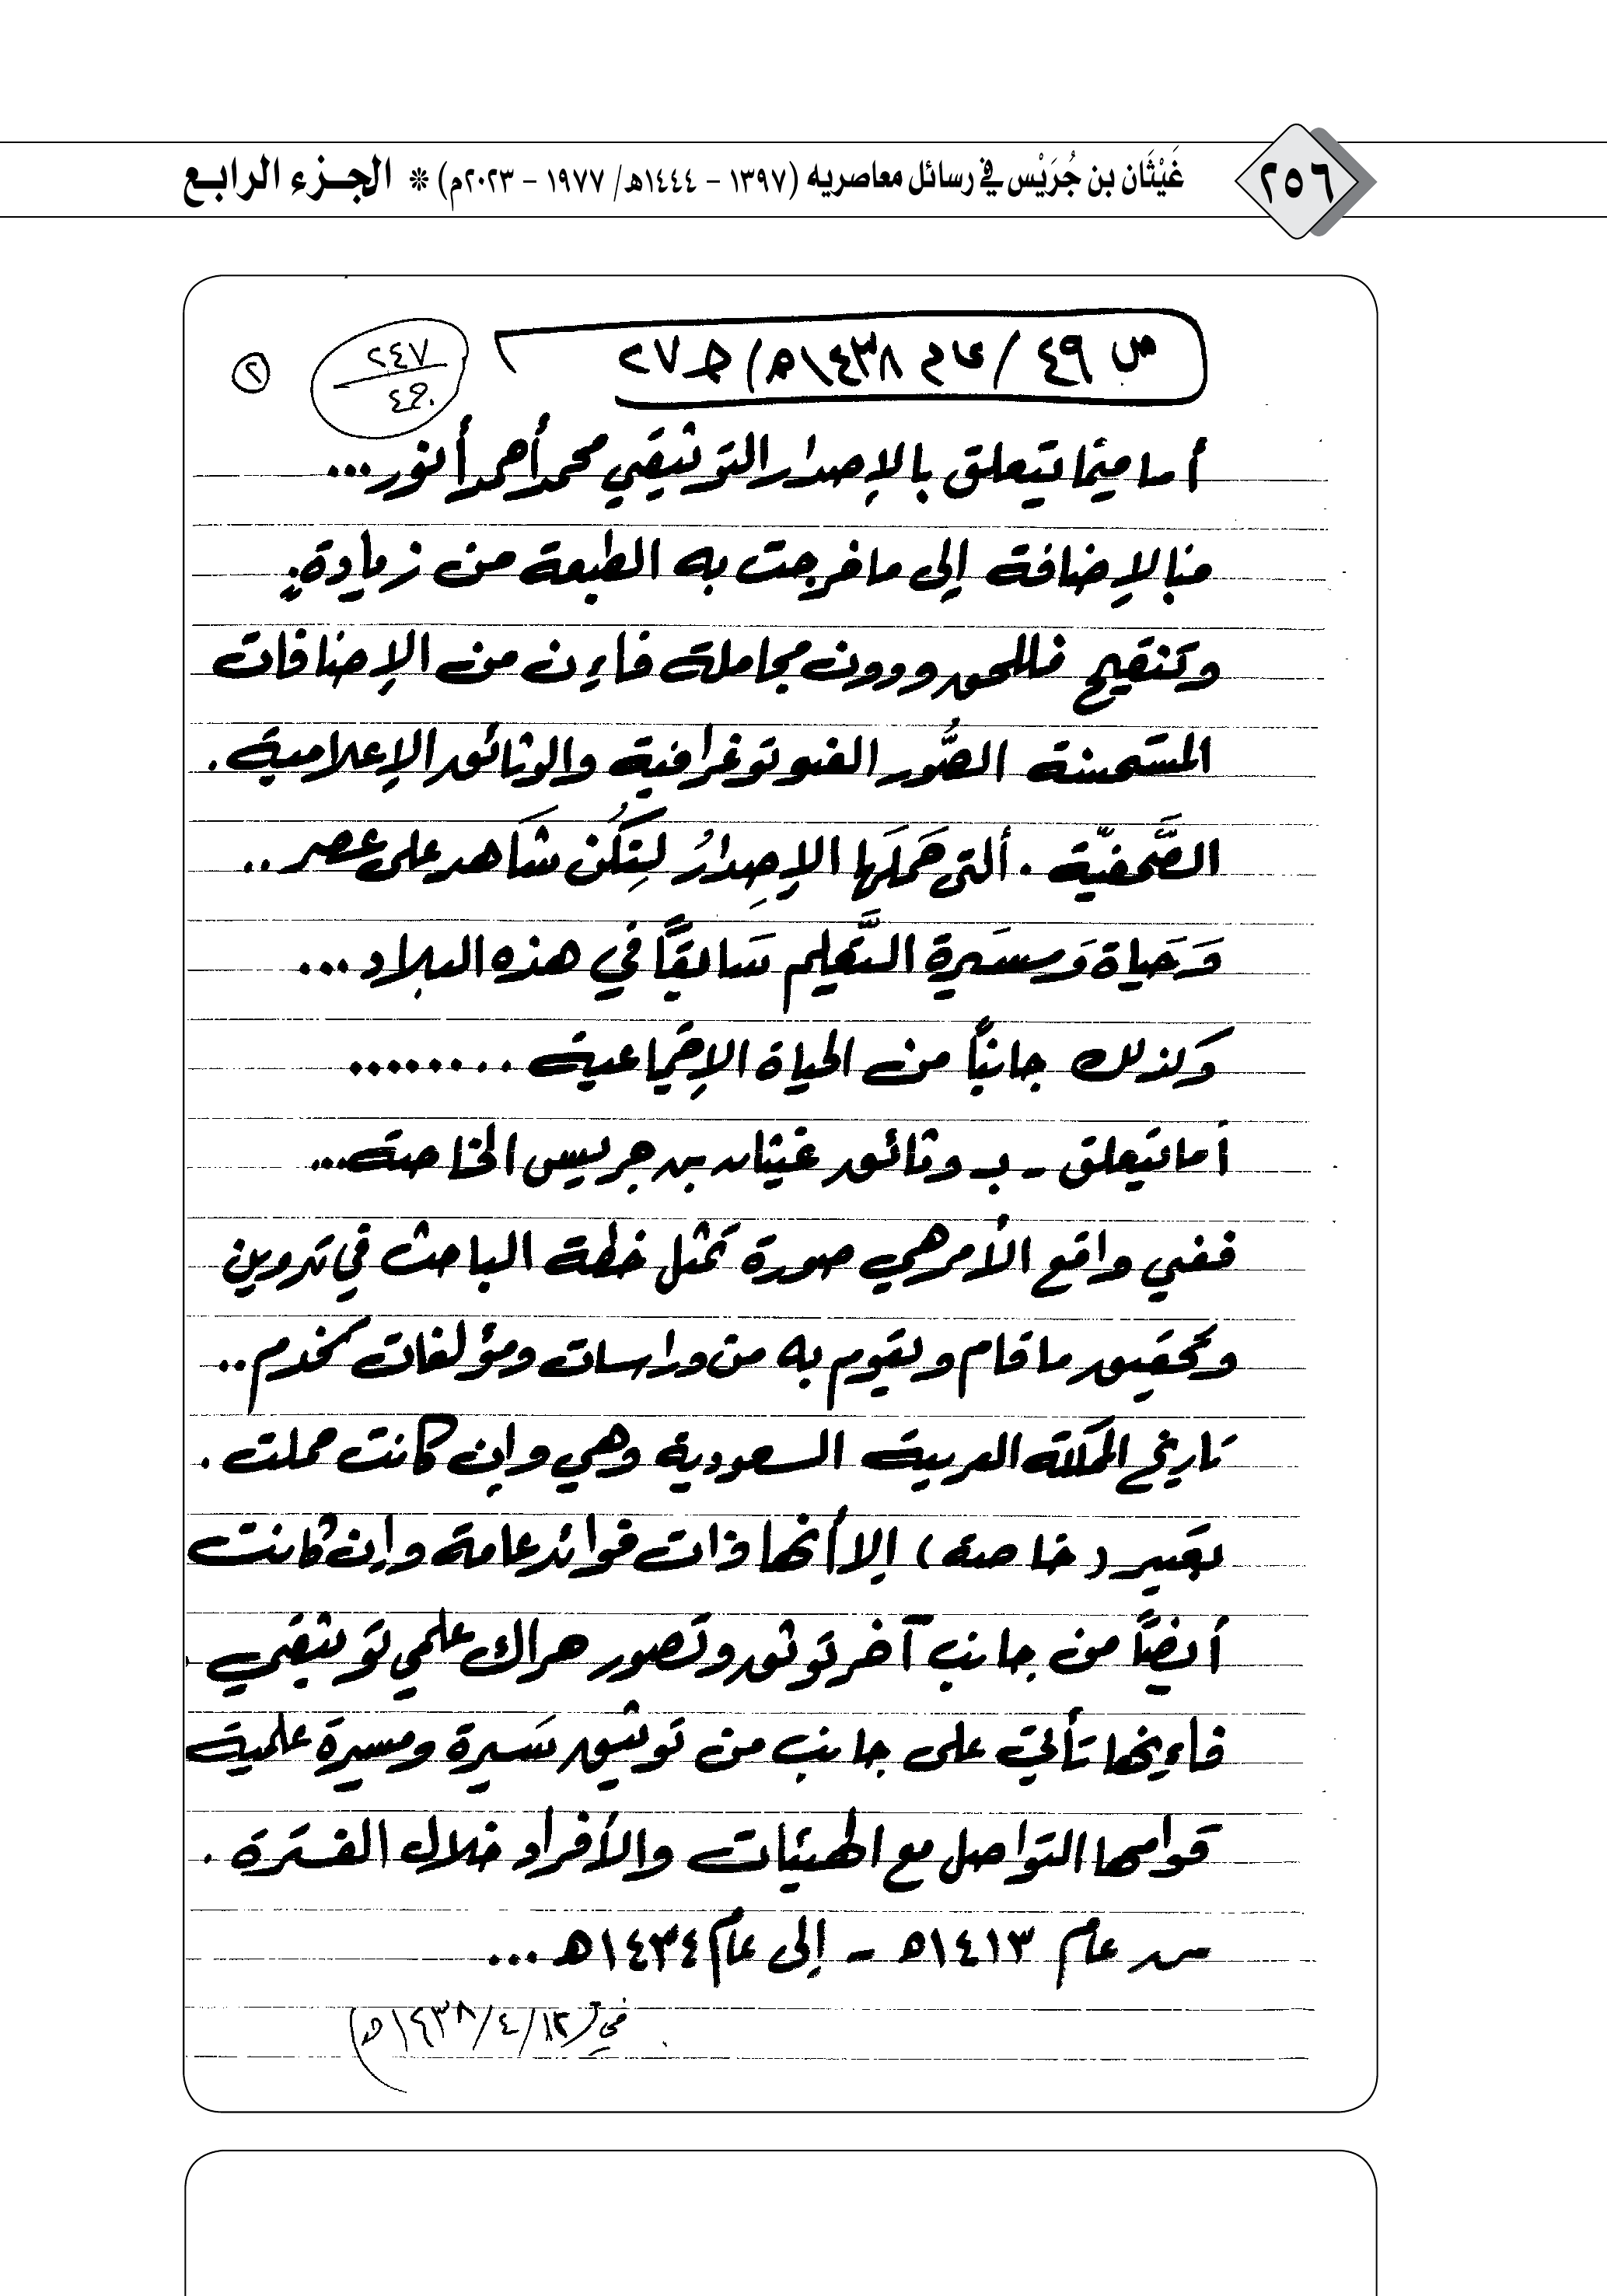 ٢٥٦
غَيْثَان بن جُرَيْس في رسائل معاصريه (١٣٩٧ – ١٤٤٤هـ/ ١٩٧٧ – ٢٠٢٣م) * الجـزء الرابـع
ص ٤٩ / عام ١٤٣٨هـ) ج٢٧
٢٤٧
٢
أما فيما يتعلق بالإصدار التوثيقي محمد أحمد أنور...
فبالإضافة إلى ما خرجت به الطبعة من زيادة.
وتنقيح فللحق ودون مجاملة فاءِن من الإضافات
المستحسنة الصُّور الفوتوغرافية والوثائق الإعلامية.
الصَّحفيّة . ألتي حَملَها الإصِدارُ لِتكُن شَاهد على عصر ..
وَحَياة وَمسَيرة التَّعليم سَابقاً في هذه البلاد ...
وَكذلك جانباً من الحياة الإجتماعية ........
أما يتعلق - بـ وثائق غيثان بن جريس الخاصة...
ففي واقع الأمر هي صورة تمثل خطة الباحث في تدوين
وتحقيق ما قام ويقوم به من دراسات ومؤلفات تخدم ..
تاريخ المملكة العربية السعودية وهي وإن كانت حملت .
تعبير (خاصة) إلا أنها ذات فوائد عامة وإن كانت
أيضاً من جانب آخر توثق وتصور حراك علمي توثيقي
فاءِنها تأتي على جانب من توثيق سَيرة ومسيرة علمية
قوامها التواصل مع الهيئات والأفراد خلال الفترة .
من عام ١٤١٣هـ - إلى عام ١٤٣٤هـ ...
في ١٢/ ٤/ ١٤٣٨هـ)